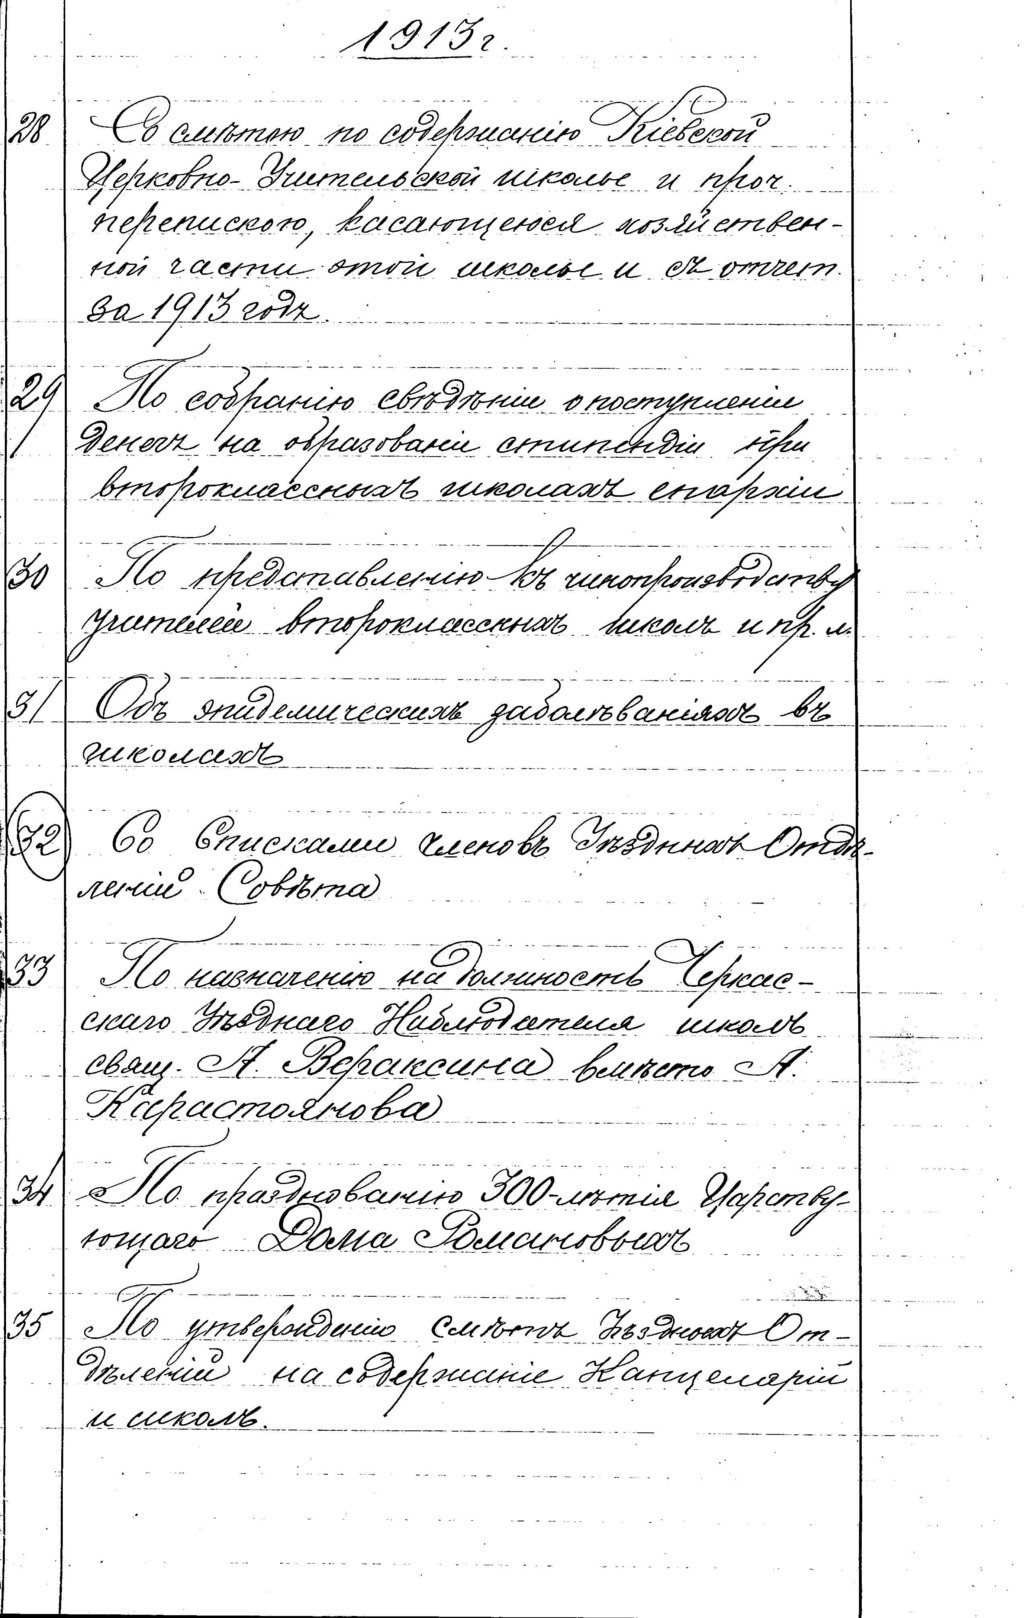 1913 г.
28 Со смѣтою по содержанію Кіевской
Церковно-Учительской школы и проч.
перепискою, касающеюся хозяйствен-
ной части этой школы и съ отчет.
за 1913 годъ.
29 По собранію свѣдѣній о поступленіи
денегъ на образованіи стипендіи при
второклассныхъ школахъ епархіи
30 По представленію къ чинопроизводству
учителей второклассныхъ школъ и пр. л.
31 Объ эпидемическихъ заболѣваніяхъ въ
школахъ
32 Со Списками членовъ Уѣздныхъ Отдѣ-
леній Совѣта
33 По назначенію на должность Черкас-
скаго Уѣзднаго Наблюдателя школъ
свящ. А. Вераксина вмѣсто А.
Карастоянова
34 По празднованію 300-лѣтія Царству-
ющаго Дома Романовыхъ
35 По утвержденію смѣтъ Уѣздныхъ От-
дѣленій на содержаніе Канцелярій
и школъ.